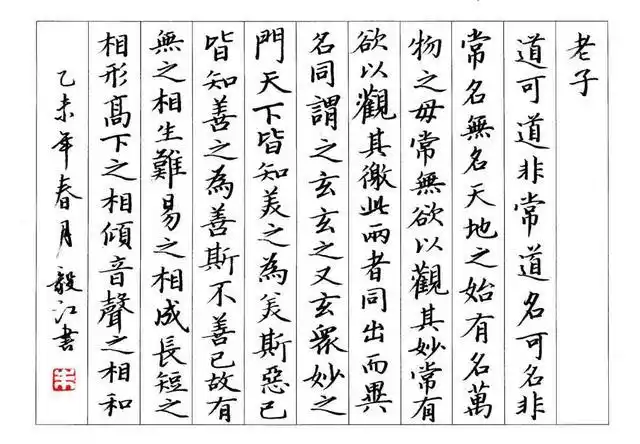 老子
道可道非常道名可名非
常名無名天地之始有名萬
物之母常無欲以觀其妙常有
欲以觀其徼此兩者同出而異
名同謂之玄玄之又玄眾妙之
門天下皆知美之為美斯惡已
皆知善之為善斯不善已故有
無之相生難易之相成長短之
相形高下之相傾音聲之相和
乙未年春月毅江書
朱